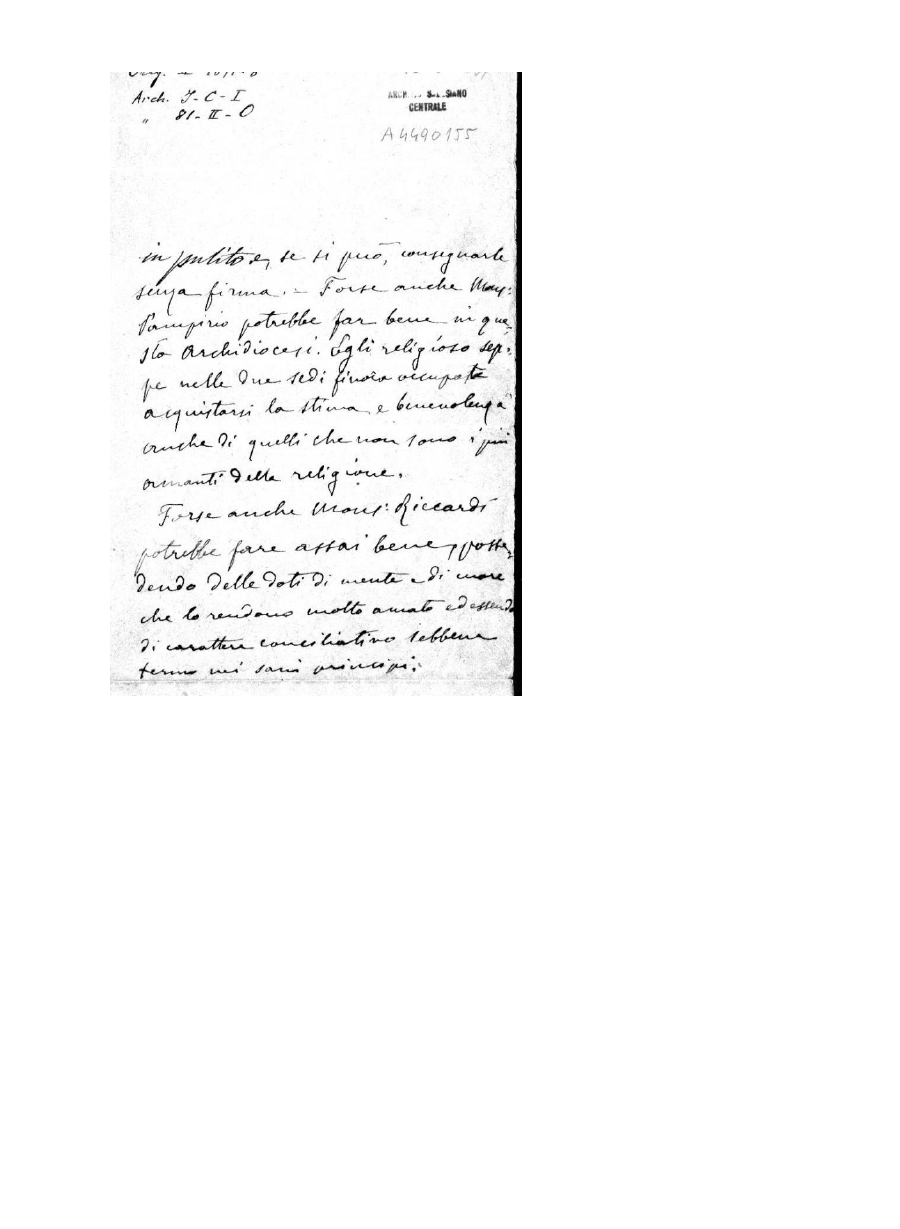 Arch. J-C-I
" 81-II-O
CENTRALE
A4490155
in pulito e, se si può, consegnarle
senza firma. - Forse anche Mons:
Pampirio potrebbe far bene in que-
sta Archidiocesi. Egli religioso sep-
pe nelle due sedi finora occupate
acquistarsi la stima e benevolenza
anche di quelli che non sono i più
amanti della religione.
Forse anche Mons: Riccardi
potrebbe fare assai bene, posse-
dendo delle doti di mente e di cuore
che lo rendono molto amato ed essendo
di carattere conciliativo sebbene
fermo nei sani principi.